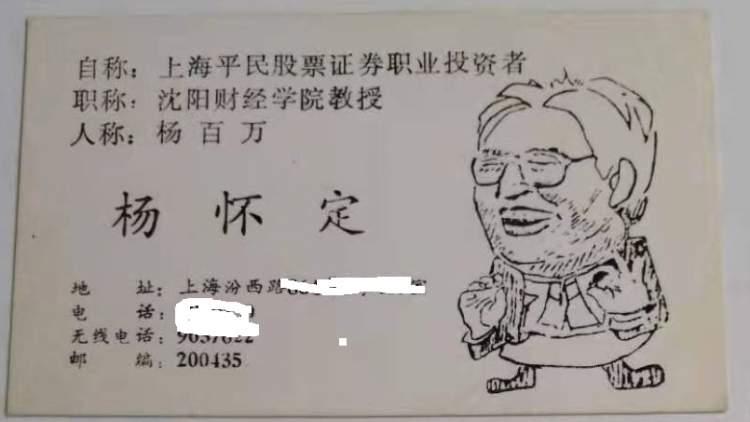 自称：上海平民股票证券职业投资者
职称：沈阳财经学院教授
人称：杨百万
杨怀定
地址：上海汾西路
电话：
无线电话：
邮编：200435